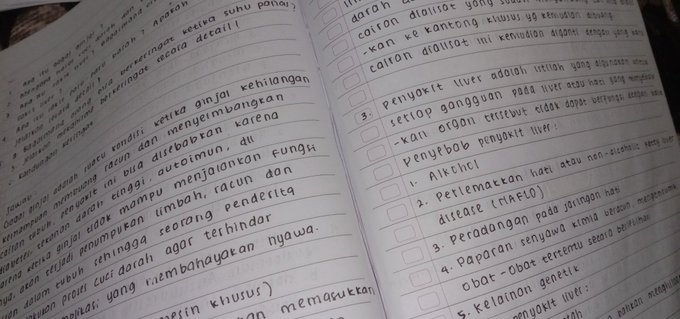 Apa itu gagal ginjal
darah dan
Apa itu penyakit liver?
Apa itu paru paru basah? Apakah
berkeringat ketika suhu panas?
Jelaskan mekanisme berkeringat secara detail!
Kandungan keringat
Jawab
Gagal ginjal adalah suatu kondisi ketika ginjal kehilangan
kemampuan membuang racun dan menyeimbangkan
cairan tubuh, penyakit ini bisa disebabkan karena
diabetes, tekanan darah tinggi, autoimun, dll
karena ketika ginjal tidak mampu menjalankan fungsi
nya, akan terjadi penumpukan limbah, racun dan
cairan dalam tubuh sehingga seorang penderita
proses cuci darah agar terhindar
komplikasi yang membahayakan nyawa.
mesin khusus)
memasukkan
darah
cairan dialisat yang sudah
-kan ke kantong khusus yg kemudian dibuang.
cairan dialisat ini kemudian diganti dengan yang baru
3. Penyakit liver adalah istilah yang digunakan untuk
setiap gangguan pada liver atau hati yang menyebab
-kan organ tersebut tidak dapat berfungsi dengan baik
Penyebab penyakit liver:
1. Alkohol
2. Perlemakkan hati atau non-alcoholic fatty liver
disease (NAFLD)
3. Peradangan pada jaringan hati
4. Paparan senyawa kimia beracun, mengkonsumsi
obat-obat tertentu secara berlebihan
5. Kelainan genetik
penyakit liver: